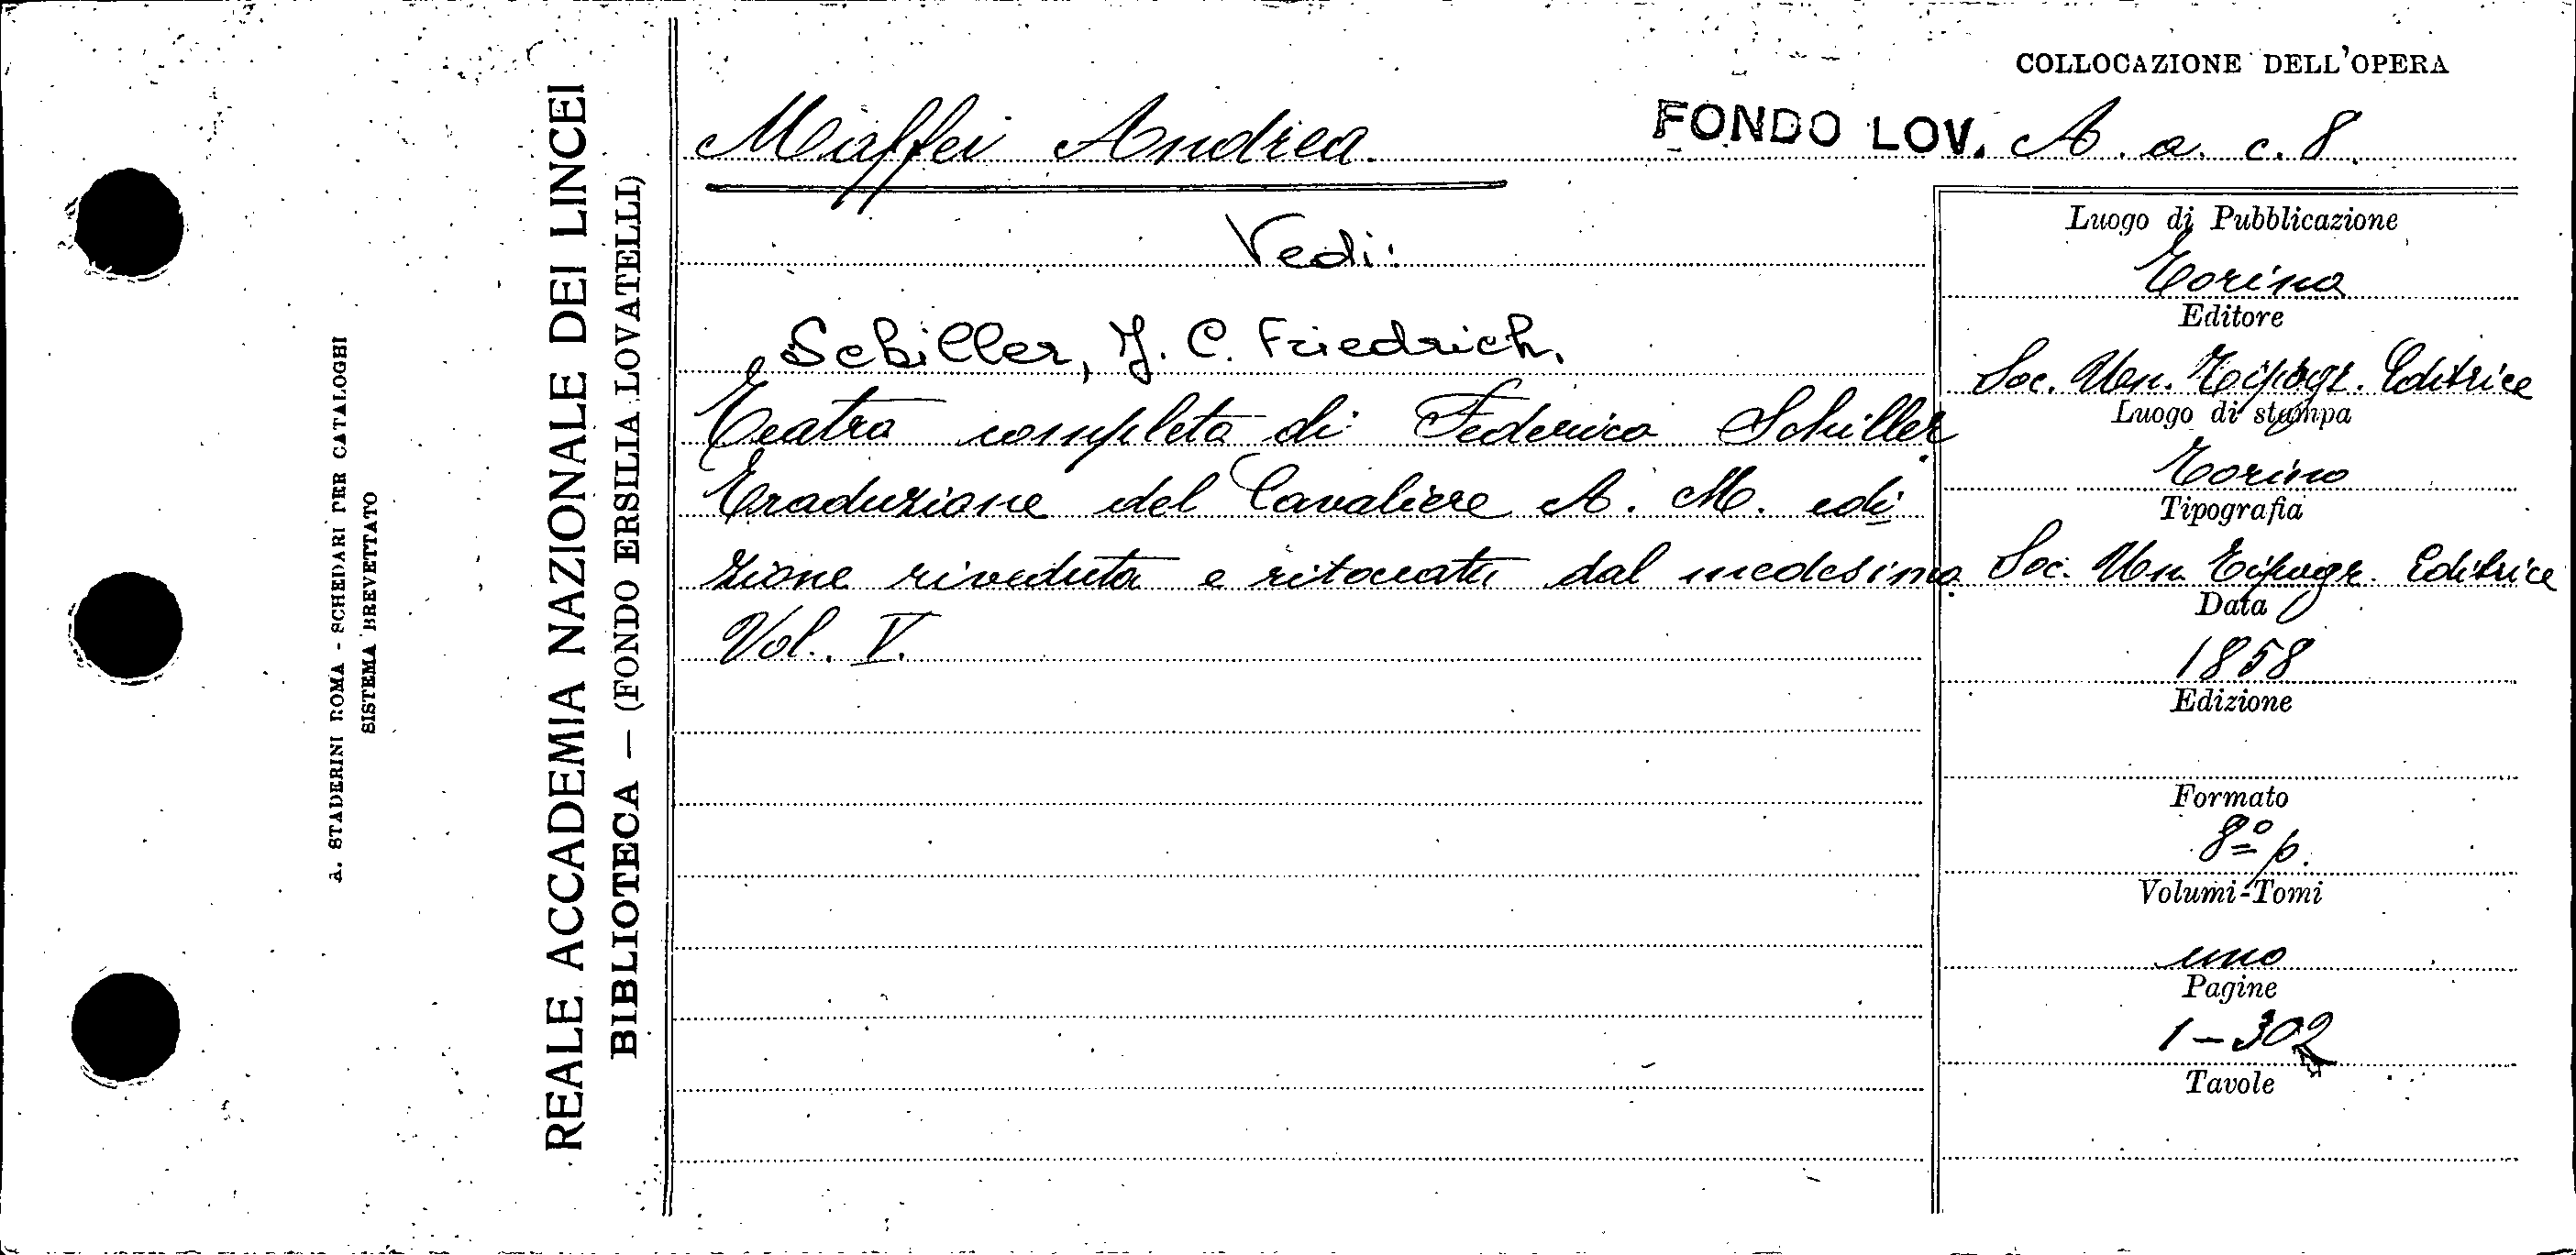 A. STADERINI ROMA - SCHEDARI PER CATALOGHI
SISTEMA BREVETTATO
REALE ACCADEMIA NAZIONALE DEI LINCEI
BIBLIOTECA — (FONDO ERSILIA LOVATELLI)
COLLOCAZIONE DELL'OPERA
Maffei Andrea.
FONDO LOV. A. a. c. 8.
Vedi:
Schiller, J. C. Friedrich.
Teatro completo di Federico Schiller
Traduzione del Cavaliere A. M. edi
zione riveduta e ritoccata dal medesimo
Vol. V.
Luogo di Pubblicazione
Torino
Editore
Soc. Un. Tipogr. Editrice
Luogo di stampa
Torino
Tipografia
Soc. Un. Tipogr. Editrice
Data
1858
Edizione
Formato
8º p.
Volumi-Tomi
uno
Pagine
1-302
Tavole